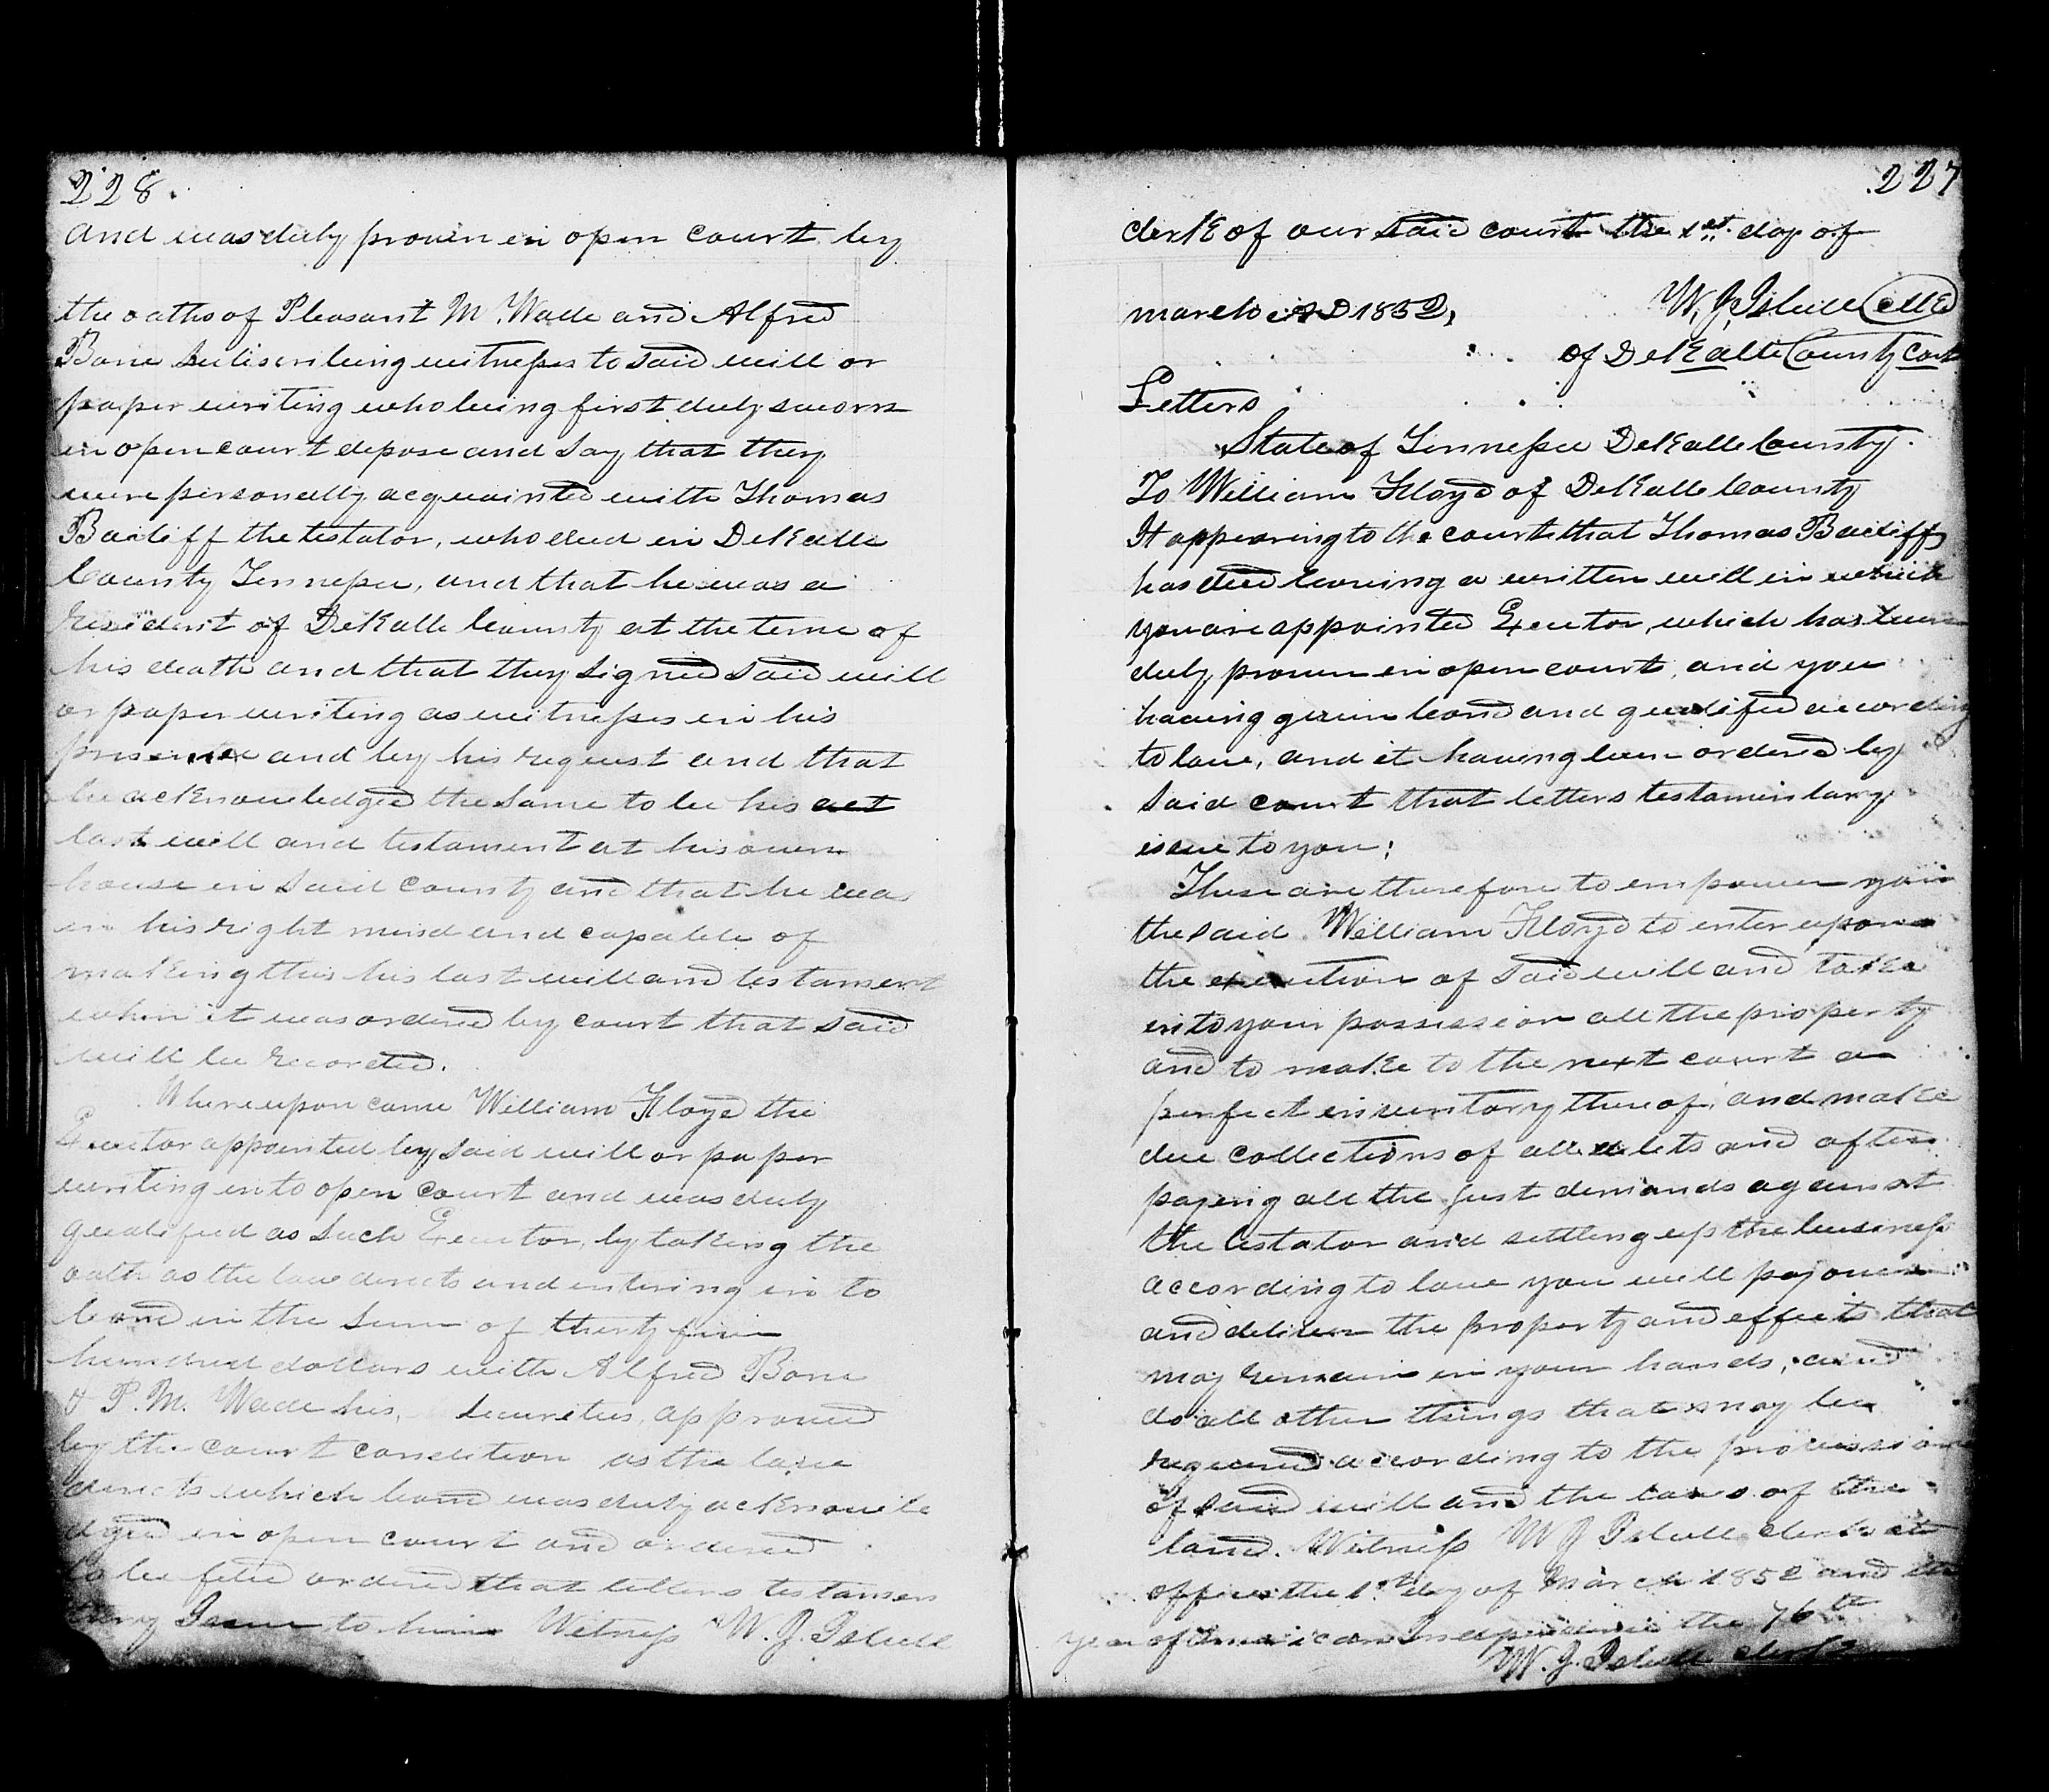 228.
and was duly proven in open court by
the oaths of Pleasant M. Wade and Alfred
Bone Subscribing witnesses to said will or
paper writing who being first duly sworn
in open court depose and Say that they
were personally acquainted with Thomas
Bailiff the testator, who died in DeKalb
County Tennessee, and that he was a
resident of DeKalb County at the time of
his death and that they signed said will
or paper writing as witnesses in his
presence and by his request and that
he acknowledged the same to be his act
last will and testament at his own
house in said County and that he was
in his right mind and capable of
making this his last will and testament
when it was ordered by court that said
will be recorded.
Whereupon came William Floyd the
Executor appointed by said will or paper
writing into open court and was duly
qualified as Such Executor, by taking the
oath as the law directs and entering in to
bond in the Sum of thirty five
hundred dollars with Alfred Bone
& P. M. Wade his, Securities, approved
by the court condition as the law
directs which bond was duly acknowle
dged in open court and ordered
to be filed ordered that letters testamen
tary Issue to him Witness W. J. Isbell
227
clerk of our said court the 1st day of
march AD 1852, W. J. Isbell Clk
of DeKalb County Court
Letters
State of Tennessee DeKalb County.
To William Floyd of DeKalb County
It appearing to the court that Thomas Bailiff
has died leaving a written will in which
you are appointed Executor, which has been
duly proven in open court, and you
having given bond and qualified according
to law, and it having been ordered by
said court that letters testamentary
issue to you;
These are therefore to empower you
the said William Floyd to enter upon
the execution of said will and take
into your possession all the property
and to make to the next court a
perfect inventory thereof, and make
due collections of all debts and after
paying all the just demands against
the testator and settling up the business
according to law you will pay over
and deliver the property and effects that
may remain in your hands, and
do all other things that may be
required according to the provissions
of said will and the laws of the
land. Witness W J Isbell clerk at
office the 1st day of March 1852 and the
year of American Independence the 76th
W. J. Isbell clerk